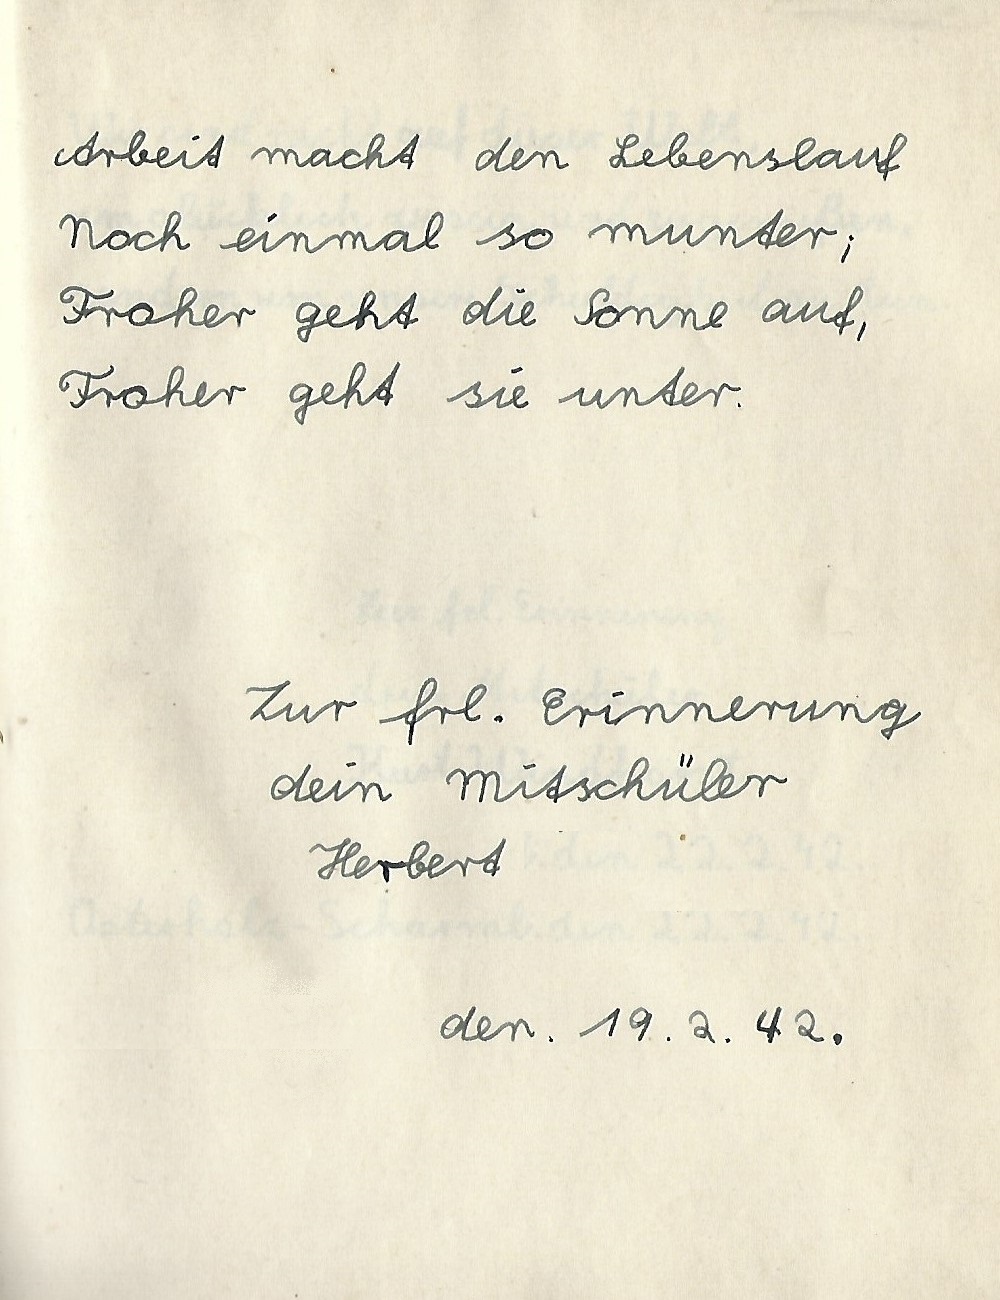 Arbeit macht den Lebenslauf
Noch einmal so munter;
Froher geht die Sonne auf,
Froher geht sie unter.
Zur frl. Erinnerung
dein Mitschüler
Herbert
den. 19. 2. 42.